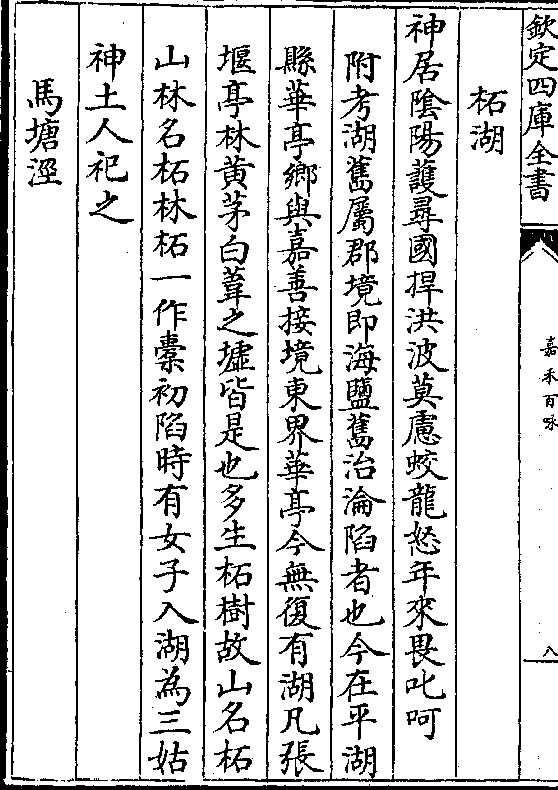 欽定四庫全書
嘉禾百咏
八
柘湖
神居隂陽䕶尋國捍洪波莫慮蛟龍怒年來畏叱呵
附考湖舊屬郡境即海鹽舊治淪陷者也今在平湖
縣華亭鄉與嘉善接境東界華亭今無復有湖凡張
堰亭林黄茅白葦之墟皆是也多生柘樹故山名柘
山林名柘林柘一作橐初陷時有女子入湖為三姑
神土人祀之
馬塘涇